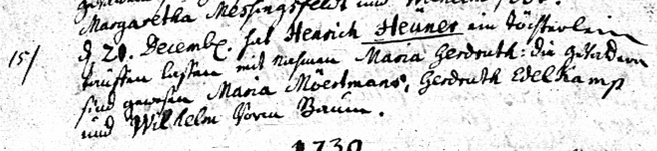 Margaretha Messingsfeldt und Wilhelm
15/ d. 20. Decembr. hat Henrich Heuner ein töchterlein
tauffen lassen mit nahmen Maria Gerdruth: die gevattern
sind gewesen Maria Möertmans, Gerdruth Edelkamp
und Wilhelm vorm Baum.
1739